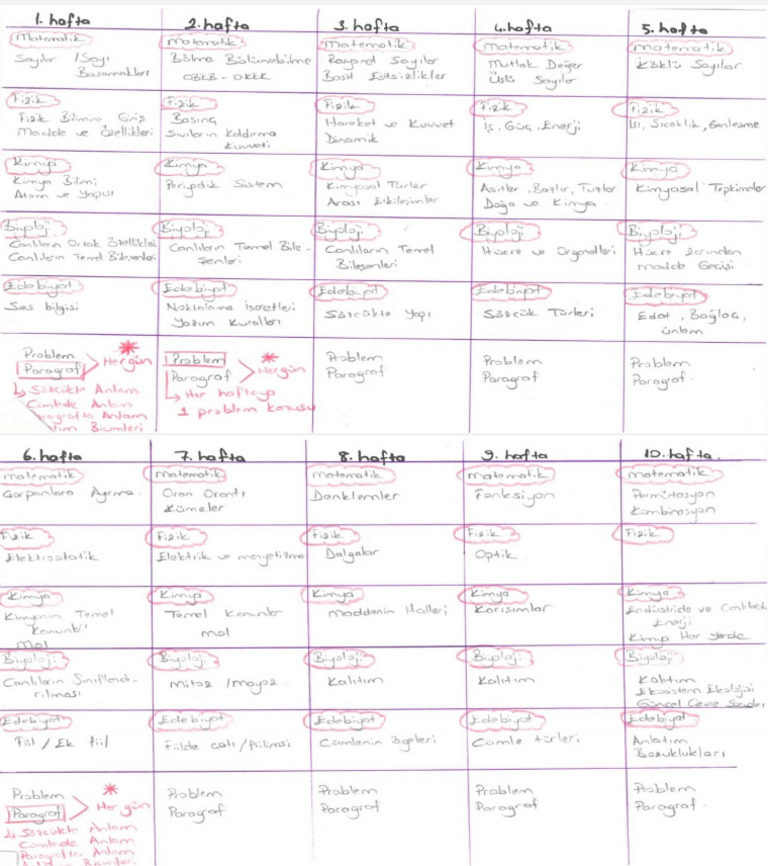 1. hafta
Matematik
Sayılar / Sayı
Basamakları
Fizik
Fizik Bilimine Giriş
Madde ve Özellikleri
Kimya
Kimya Bilmi
Atom ve Yapısı
Biyoloji
Canlıların Ortak Özellikleri
Canlıların Temel Bileşenleri
Edebiyat
Ses bilgisi
Problem
Paragraf
Her gün
Sözcükte Anlam
Cümlede Anlam
Anlam
Biçimleri
2. hafta
Matematik
Bölme Bölünebilme
OBEB - OKEK
Fizik
Basınç
Sıvıların Kaldırma
Kuvveti
Kimya
Periyodik Sistem
Biyoloji
Canlıların Temel Bile-
şenleri
Edebiyat
Noktalama İşaretleri
Yazım Kuralları
Problem
Paragraf
Her gün
Her haftaya
1 problem konusu
3. hafta
Matematik
Rasyonel Sayılar
Basit Eşitsizlikler
Fizik
Hareket ve Kuvvet
Dinamik
Kimya
Kimyasal Türler
Arası Etkileşimler
Biyoloji
Canlıların Temel
Bileşenleri
Edebiyat
Sözcükte Yapı
Problem
Paragraf
4. hafta
Matematik
Mutlak Değer
Üslü Sayılar
Fizik
İş, Güç, Enerji
Kimya
Asitler, Bazlar, Tuzlar
Doğa ve Kimya
Biyoloji
Hücre ve Organelleri
Edebiyat
Sözcük Türleri
Problem
Paragraf
5. hafta
Matematik
Köklü Sayılar
Fizik
Isı, Sıcaklık, Genleşme
Kimya
Kimyasal Tepkimeler
Biyoloji
Hücre Zarından
Madde Geçişi
Edebiyat
Edat, Bağlaç,
Ünlem
Problem
Paragraf
6. hafta
Matematik
Çarpanlara Ayırma
Fizik
Elektrostatik
Kimya
Kimyanın Temel
Kanunları
Mol
Biyoloji
Canlıların Sınıflandı-
rılması
Edebiyat
Fiil / Ek fiil
Problem
Paragraf
Her gün
Sözcükte Anlam
Cümlede Anlam
Paragrafta Anlam
7. hafta
Matematik
Oran Orantı
Kümeler
Fizik
Elektrik ve manyetizma
Kimya
Temel Kanunlar
mol
Biyoloji
mitoz / mayoz
Edebiyat
Fiilde çatı / fiilimsi
Problem
Paragraf
8. hafta
Matematik
Denklemler
Fizik
Dalgalar
Kimya
Maddenin Halleri
Biyoloji
Kalıtım
Edebiyat
Cümlenin ögeleri
Problem
Paragraf
9. hafta
Matematik
Fonksiyon
Fizik
Optik
Kimya
Karışımlar
Biyoloji
Kalıtım
Edebiyat
Cümle türleri
Problem
Paragraf
10. hafta
Matematik
Permütasyon
Kombinasyon
Fizik
Kimya
Endüstride ve Canlılarda
Enerji
Kimya Her Yerde
Biyoloji
Kalıtım
Ekosistem Ekolojisi
Güncel Çevre Sorunları
Edebiyat
Anlatım
Bozuklukları
Problem
Paragraf